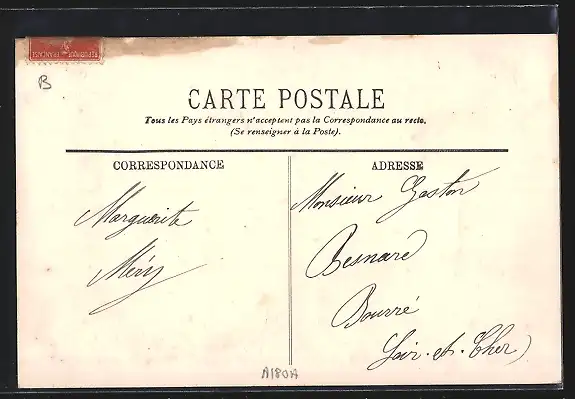 REPUBLIQUE FRANÇAISE
B
CARTE POSTALE
Tous les Pays étrangers n'acceptent pas la Correspondance au recto.
(Se renseigner à la Poste).
CORRESPONDANCE
Marguerite
Méry
ADRESSE
Monsieur Gaston
Besnard
Bourré
Loir-et-Cher)
A180A